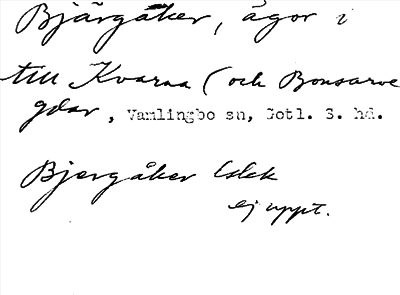 Bjärgåker, ägor i
till Kvarna (och Bonsarve
gdar, Vamlingbo sn, Gotl. S. hd.
Bjergåker Eslk
ej uppt.